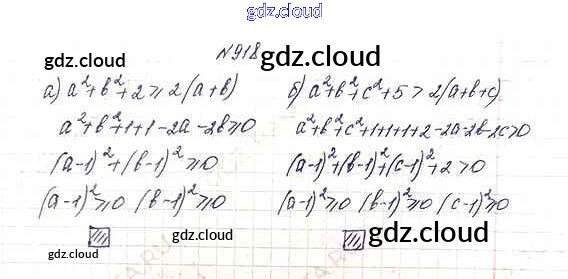 gdz.cloud
№918
gdz.cloud
gdz.cloud
а) a²+b²+2≥2(a+b)
a²+b²+1+1-2a-2b≥0
(a-1)²+(b-1)²≥0
(a-1)²≥0 (b-1)²≥0
б) a²+b²+c²+5>2(a+b+c)
a²+b²+c²+1+1+1+2-2a-2b-2c>0
(a-1)²+(b-1)²+(c-1)²+2>0
(a-1)²≥0 (b-1)²≥0 (c-1)²≥0
gdz.cloud
gdz.cloud
gdz.cloud